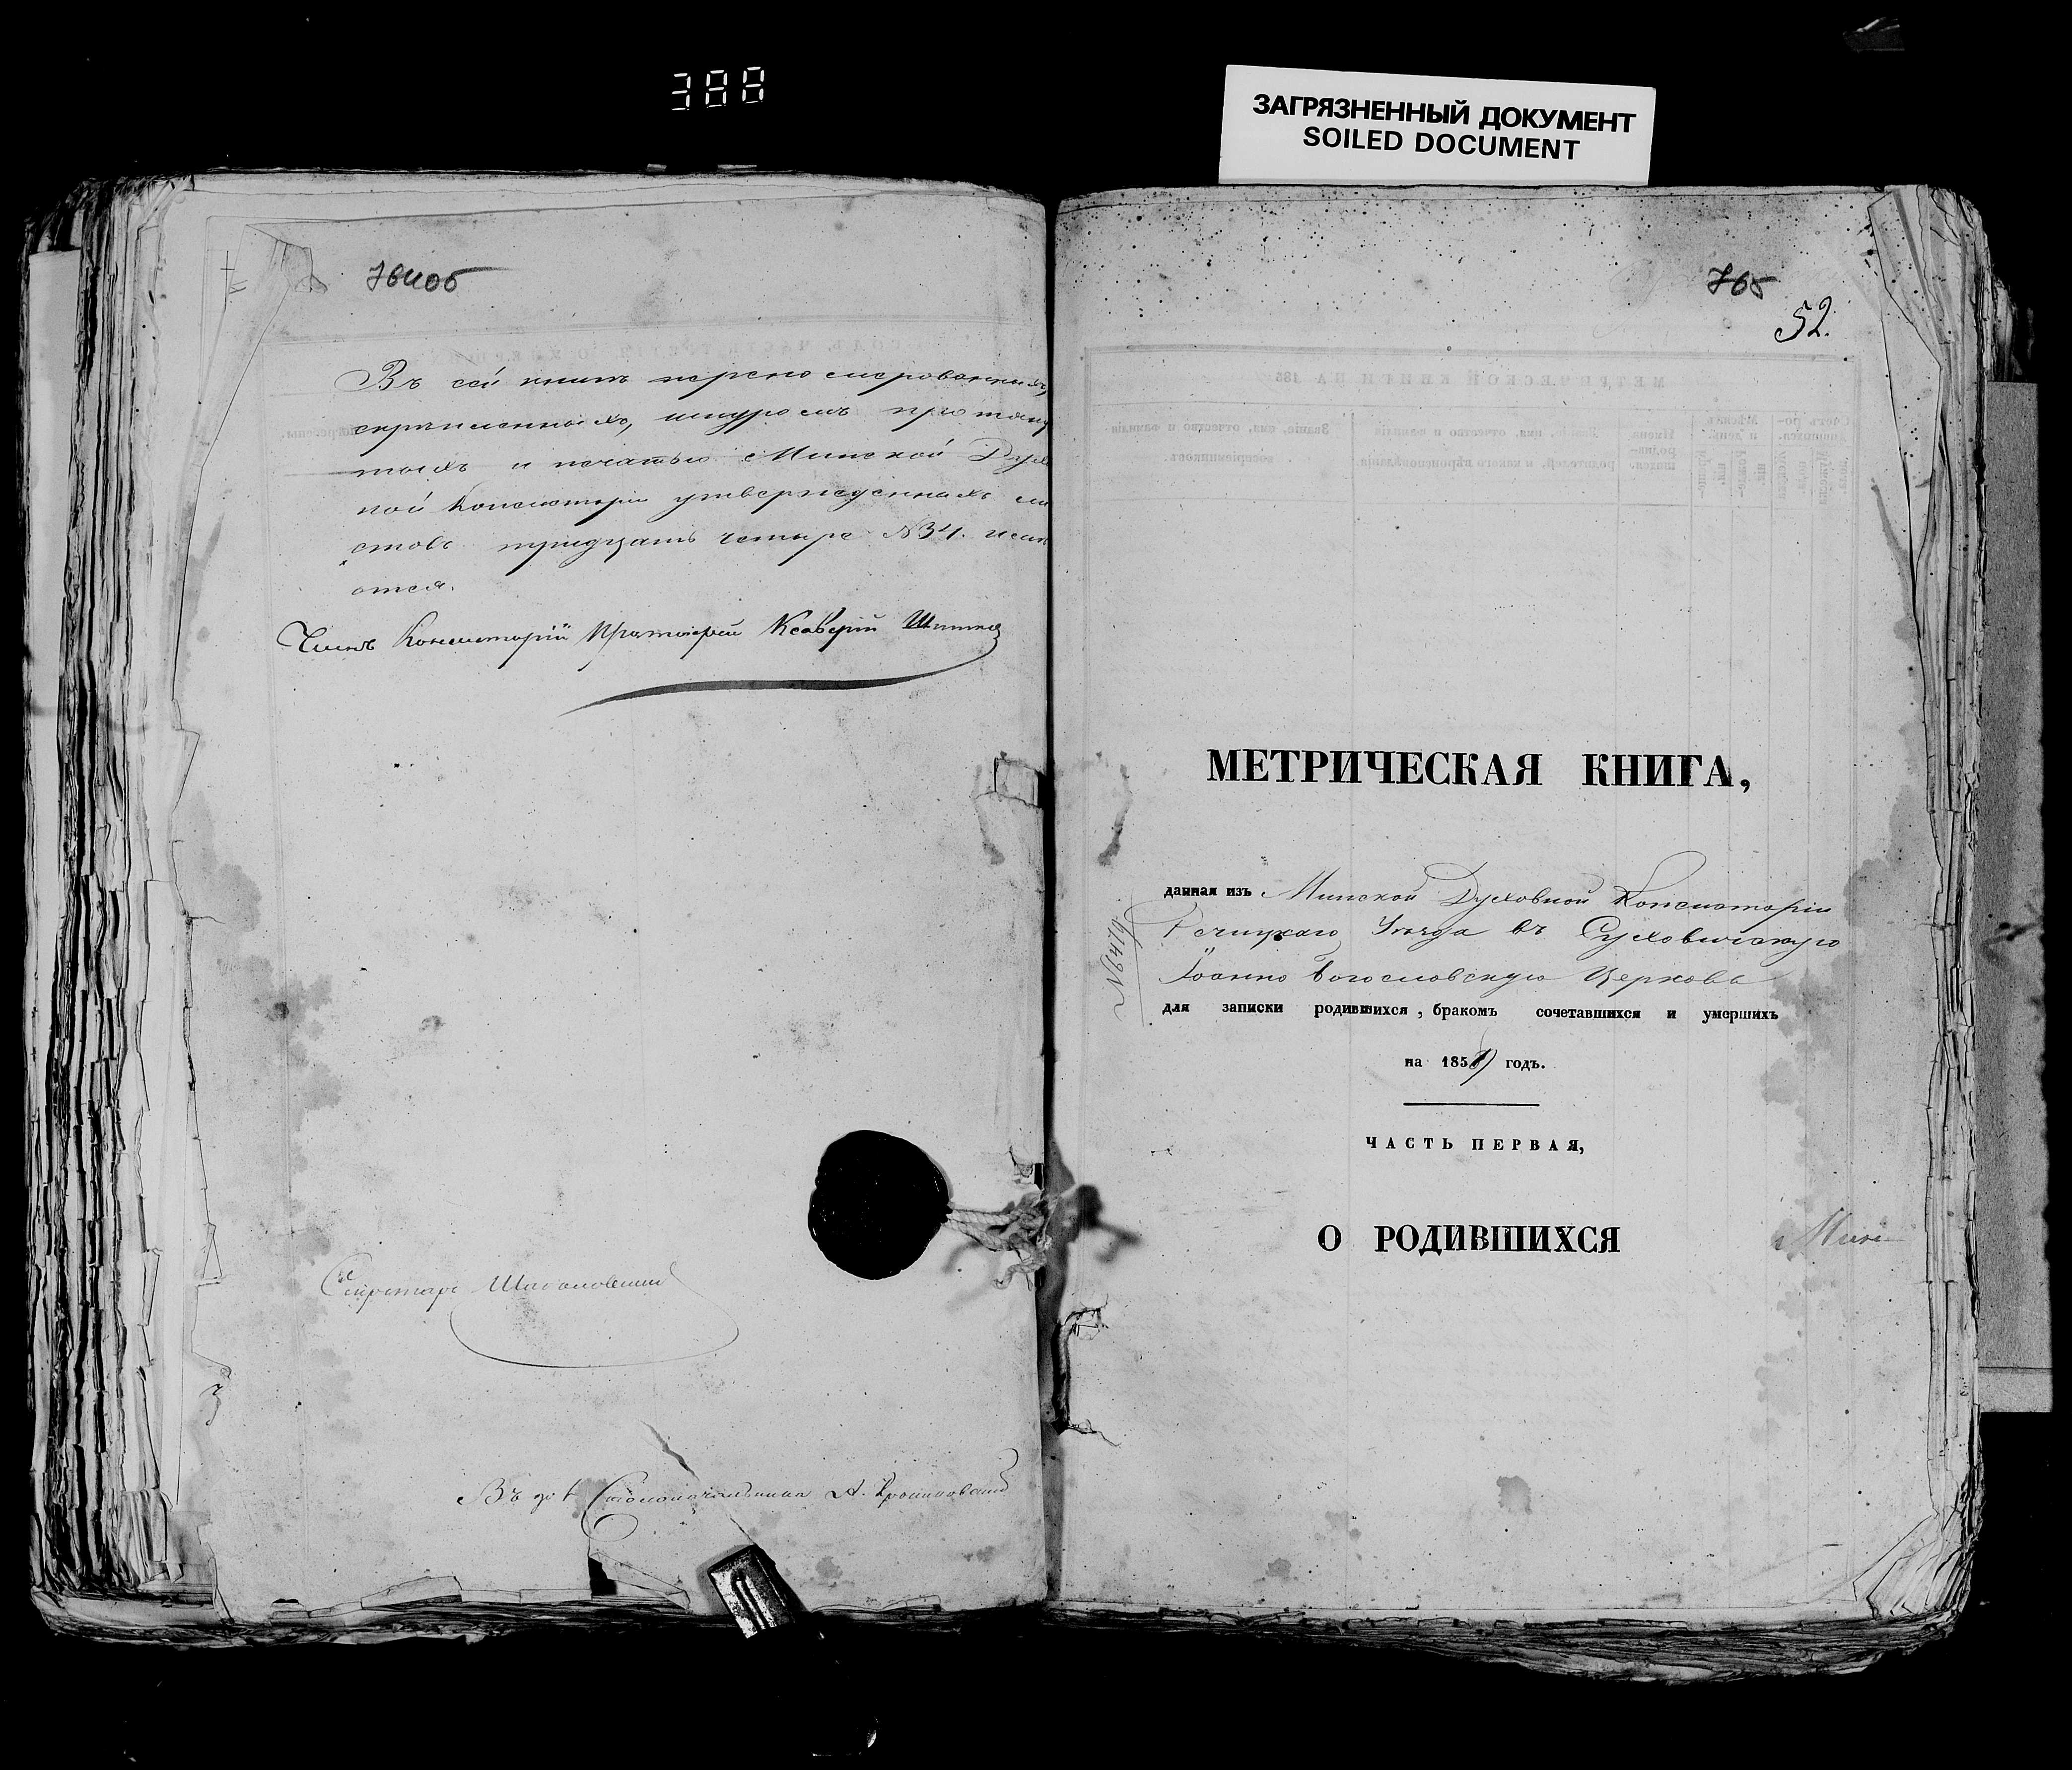 388
ЗАГРЯЗНЕННЫЙ ДОКУМЕНТ
SOILED DOCUMENT
764об
Въ сей книгѣ перенумерованныхъ,
скрѣпленныхъ, шнуромъ протяну
тыхъ и печатью Минской Духов
ной Консисторіи утвержденныхъ ли
стовъ тридцать четыре №34. име
ются.
Членъ Консисторіи Протоіерей Ксаверій
Секретарь
Въ до Столоначальника А.
765
52.
МЕТРИЧЕСКАЯ КНИГА,
данная изъ Минской Духовной Консисторіи
Речицкаго Уѣзда въ Суховичскую
Іоанно Богословскую Церковь
для записки родившихся, бракомъ сочетавшихся и умершихъ
на 1859 годъ.
ЧАСТЬ ПЕРВАЯ,
О РОДИВШИХСЯ
№6419